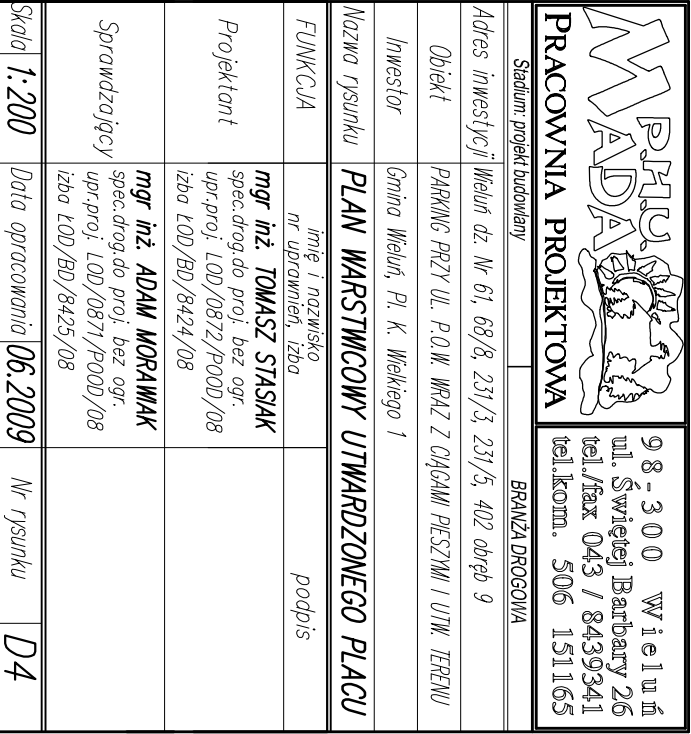 P.H.U.
MADA
PRACOWNIA PROJEKTOWA
98-300 Wieluń
ul. Świętej Barbary 26
tel./fax 043 / 8439341
tel.kom. 506 151165
Stadium: projekt budowlany
BRANŻA DROGOWA
Adres inwestycji Wieluń dz. Nr 61, 68/8, 231/3, 231/5, 402 obręb 9
Obiekt PARKING PRZY UL. P.O.W. WRAZ Z CIĄGAMI PIESZYMI I UTW. TERENU
Inwestor Gmina Wieluń, Pl. K. Wielkiego 1
Nazwa rysunku PLAN WARSTWICOWY UTWARDZONEGO PLACU
FUNKCJA
imię i nazwisko
nr uprawnień, izba
podpis
Projektant
mgr inż. TOMASZ STASIAK
spec.drog.do proj. bez ogr.
upr.proj. LOD/0872/POOD/08
izba ŁOD/BD/8424/08
Sprawdzający
mgr inż. ADAM MORAWIAK
spec.drog.do proj. bez ogr.
upr.proj. LOD/0871/POOD/08
izba ŁOD/BD/8425/08
Skala 1:200 Data opracowania 06.2009 Nr rysunku D4